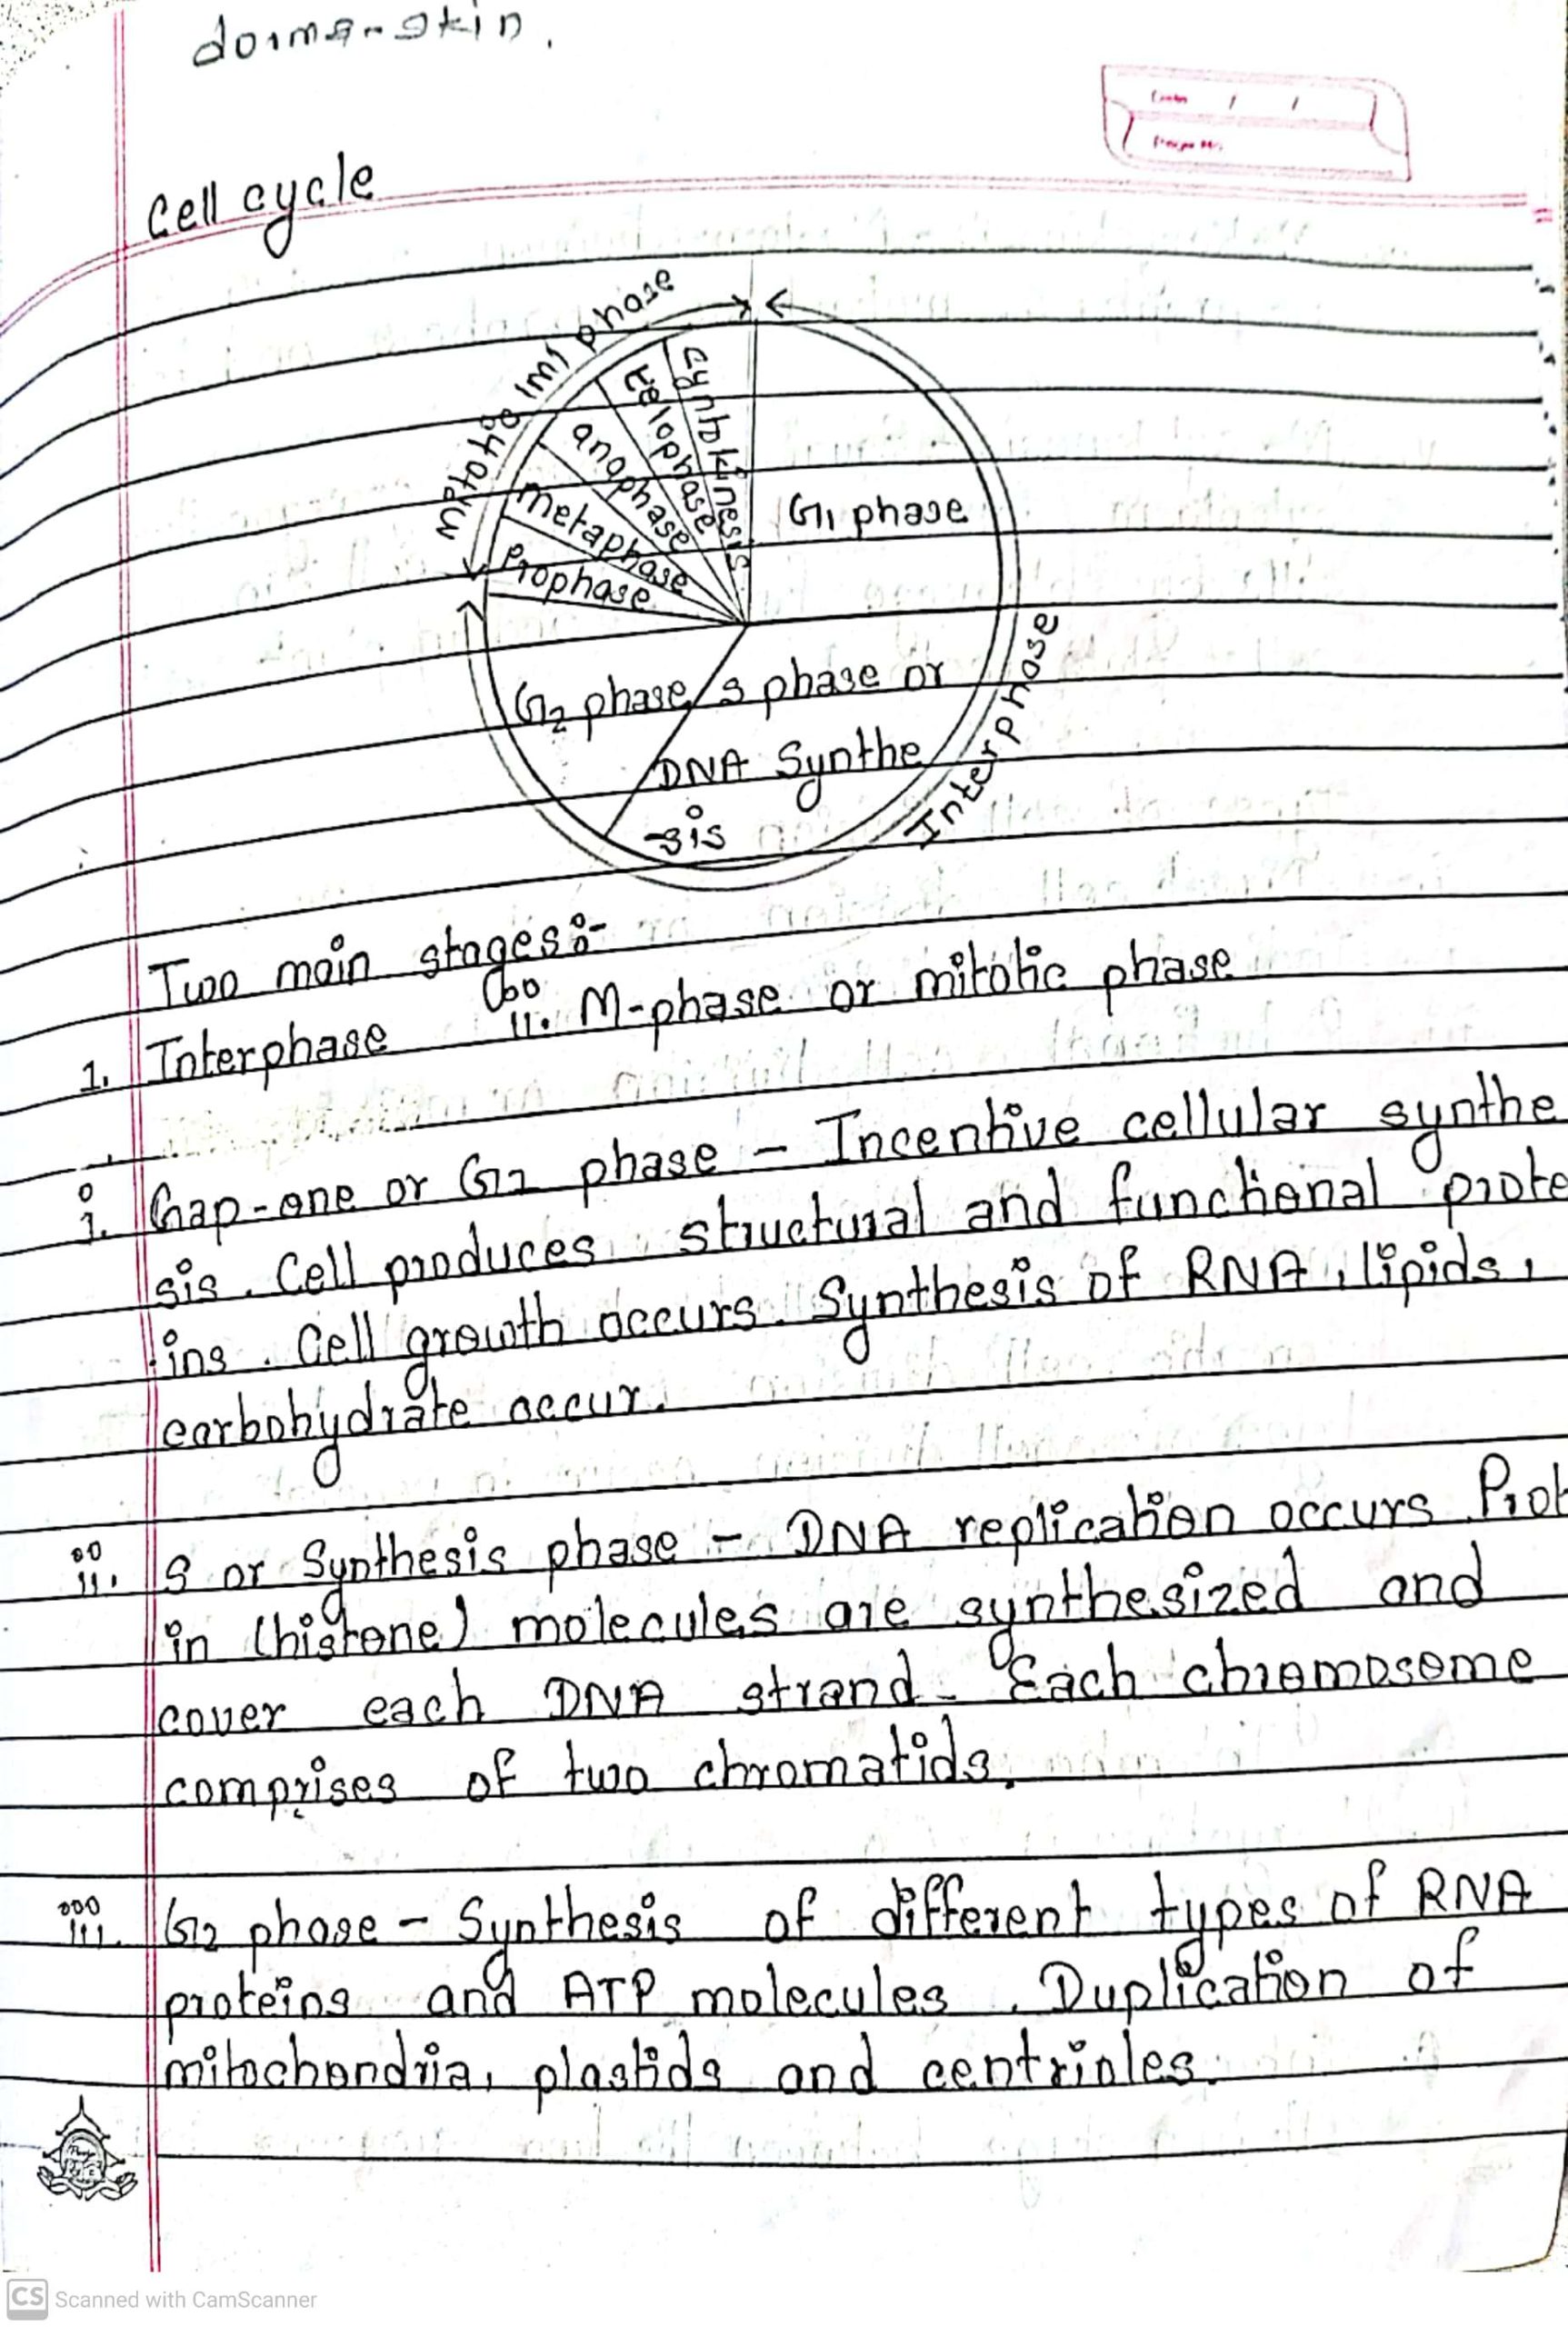 dorma-skin.
Cell cycle
mitotic (m) phase
cyntokinesis
telophase
anaphase
metaphase
prophase
G1 phase
G2 phase
s phase or
DNA Synthe
-sis
Interphase
Two main stages:-
1. Interphase ii. M-phase or mitotic phase
i. Gap-one or G1 phase - Incentive cellular synthe
sis. Cell produces structural and functional prote
ins. Cell growth occurs. Synthesis of RNA, lipids,
carbohydrate occur.
ii. S or Synthesis phase - DNA replication occurs Prot
in (histone) molecules are synthesized and
cover each DNA strand. Each chromosome
comprises of two chromatids.
iii. G2 phase - Synthesis of different types of RNA
proteins and ATP molecules. Duplication of
mitochondria, plastids and centrioles.
CS Scanned with CamScanner